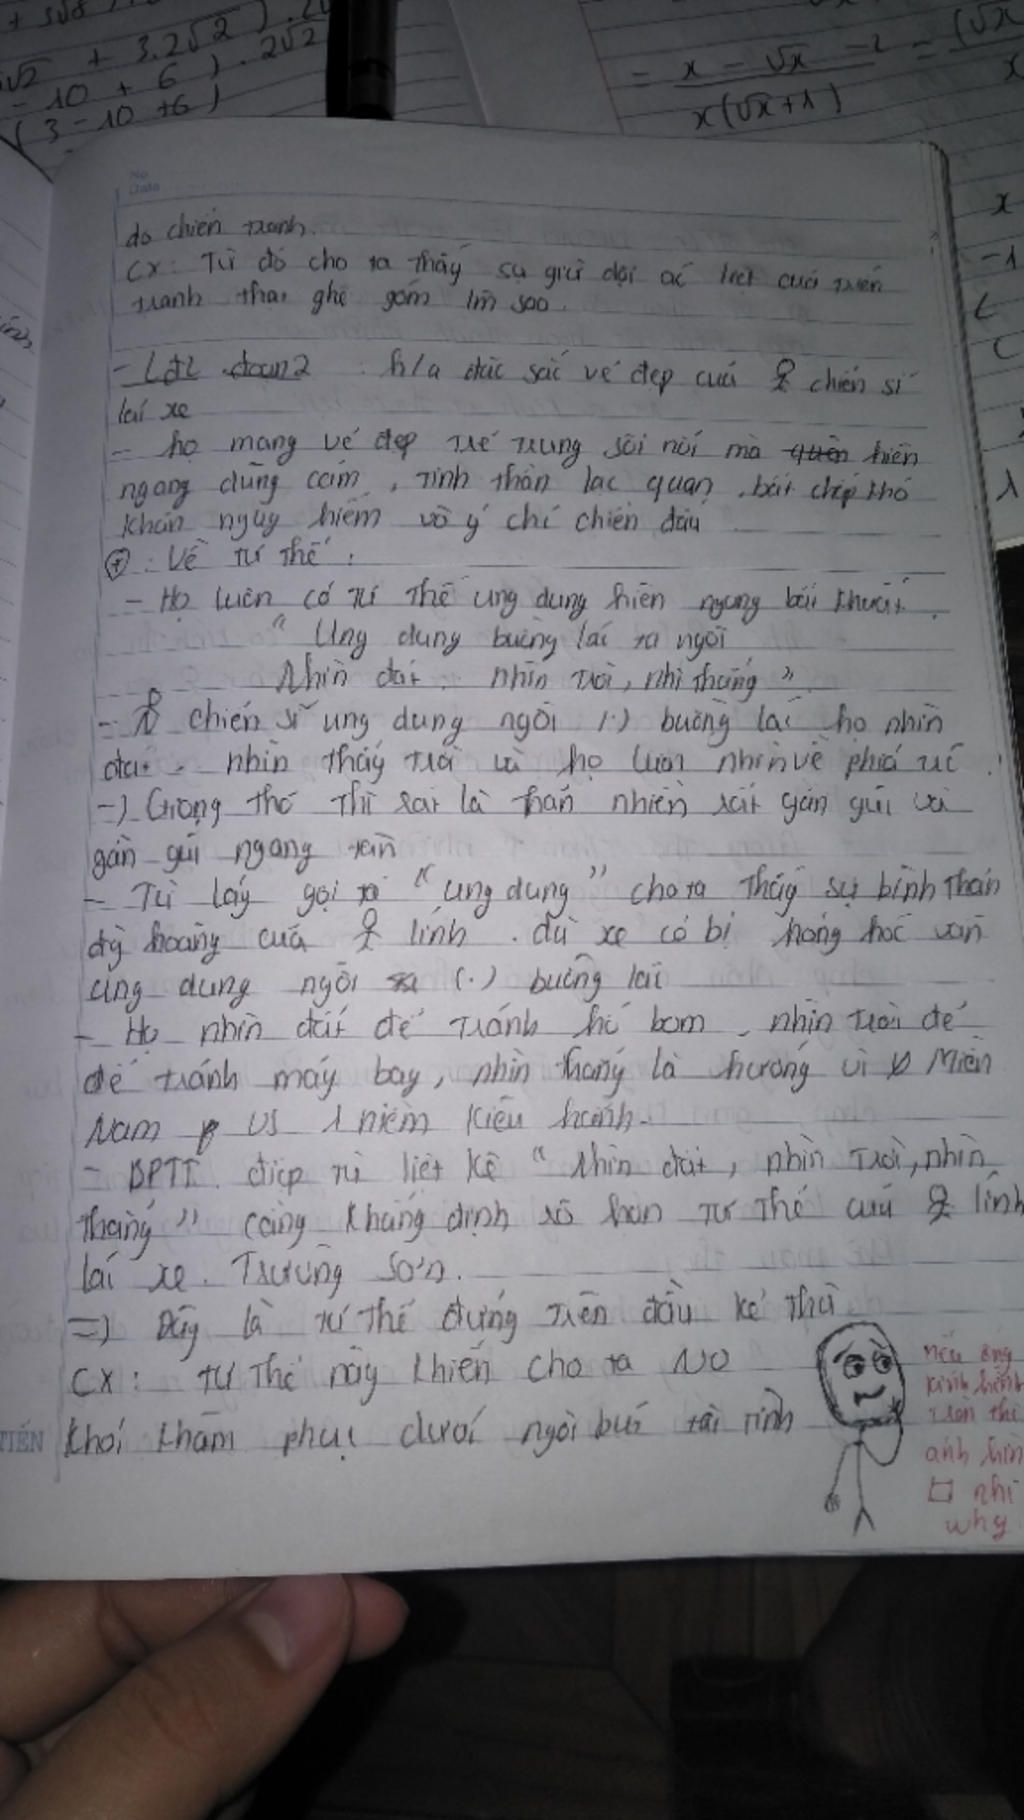 + 3.2√2 ) . 2√2
- 10 + 6 )
( 3 - 10 + 6 )
= x - √x - 2 / x(√x + 1) = (√x
x
x
-1
No.
Date
do chiến tranh.
CX: Từ đó cho ta thấy sự giữ dội ác liệt của
tranh thật ghê gớm làm sao.
- LĐ2 đoạn 2 : h/a đặc sắc vẻ đẹp của chiến sĩ
lái xe
- họ mang vẻ đẹp trẻ trung sôi nổi mà hiên
ngang dũng cảm, tinh thần lạc quan, bất chấp khó
khăn nguy hiểm và ý chí chiến đấu
+ : Về tư thế :
- Họ luôn có tư thế ung dung hiên ngang bất khuất.
" Ung dung buồng lái ta ngồi
Nhìn đất, nhìn trời, nhì thẳng "
- chiến sĩ ung dung ngồi (.) buồng lái họ nhìn
đất, nhìn thấy trời và họ luôn nhìn về phía trc
=) Giọng thơ thì rất là thản nhiên rất gần gũi và
gần gũi ngang tàn
- Từ láy gợi tả " ung dung " cho ta thấy sự bình thản
đỳ hoàng của lính. dù xe có bị hỏng hóc vẫn
ung dung ngồi (.) buồng lái
- Họ nhìn đất để tránh hố bom, nhìn trời để
để tránh máy bay, nhìn thẳng là hướng vì Miền
Nam vs 1 niềm kiêu hãnh.
- BPTT. điệp từ liệt kê " Nhìn đất, nhìn trời, nhìn
thẳng " càng khẳng định rõ hơn tư thế của lính
lái xe. Trường Sơn.
=) Đây là tư thế đứng trên đầu kẻ thù
CX : tư thế này khiến cho ta No
khỏi khâm phục dưới ngòi bút tài tình
TIẾN
nếu ông
kính hình
tròn thì
ảnh hìn
□ nhỉ
why